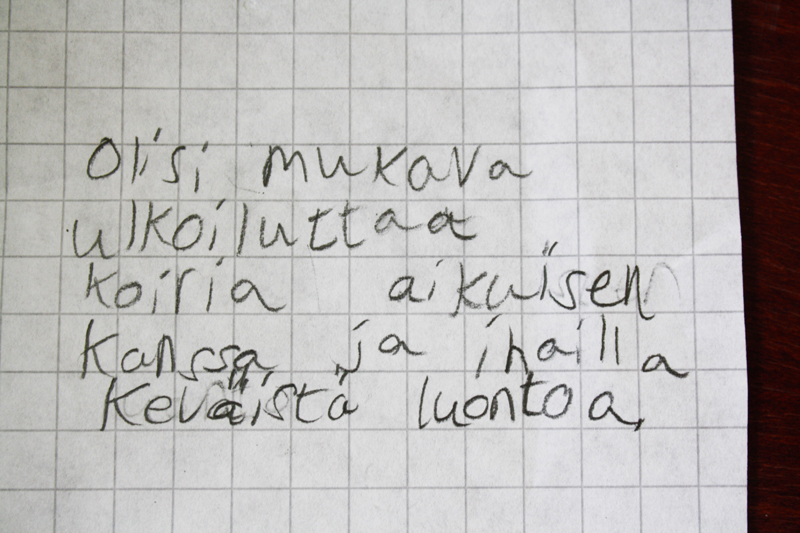 Olisi mukava
ulkoiluttaa
koiria aikuisen
kanssa ja ihailla
keväistä luontoa.